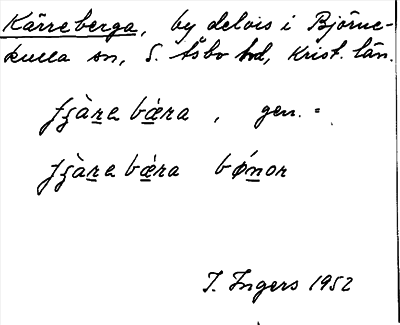 Kärreberga, by delvis i Björne-
kulla sn, S. Åsbo hd, Krist. län.
fʒàra bæ̀ra, gen. =
fʒàra bæ̀ra bǿnor
I. Ingers 1952